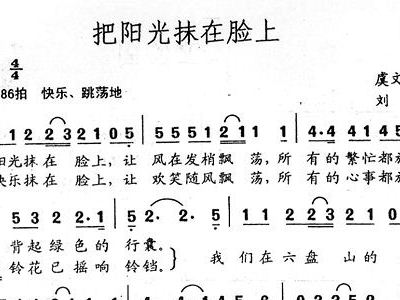 把阳光抹在脸上
4/4
86拍 快乐、跳荡地
虞文
刘
1 2 2 3 2 1 0 5 | 5 5 5 1 2 2 1 1 1 | 4·4 4 1 4 5
阳光抹在 脸上，让 风在发梢飘 荡，所 有的繁忙都
快乐抹在 脸上，让 欢笑随风飘 荡，所 有的心事都
5 3 2 2·1 | 5 2· 2· 5 | 2 1 1 2 0 3 3 2 1
背起绿色的 行囊。
铃花已摇响 铃铛。} 我 们在六盘 山的